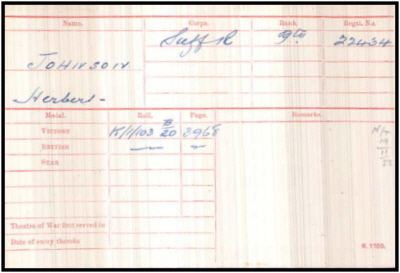 Name. Corps. Rank. Regtl. No.
Suff R Pte 22434
JOHNSON
Herbert -
Medal. Roll. Page. Remarks.
VICTORY K/1/103 B/20 3968
BRITISH
STAR
Theatre of War first served in
Date of entry therein
K. 1380.